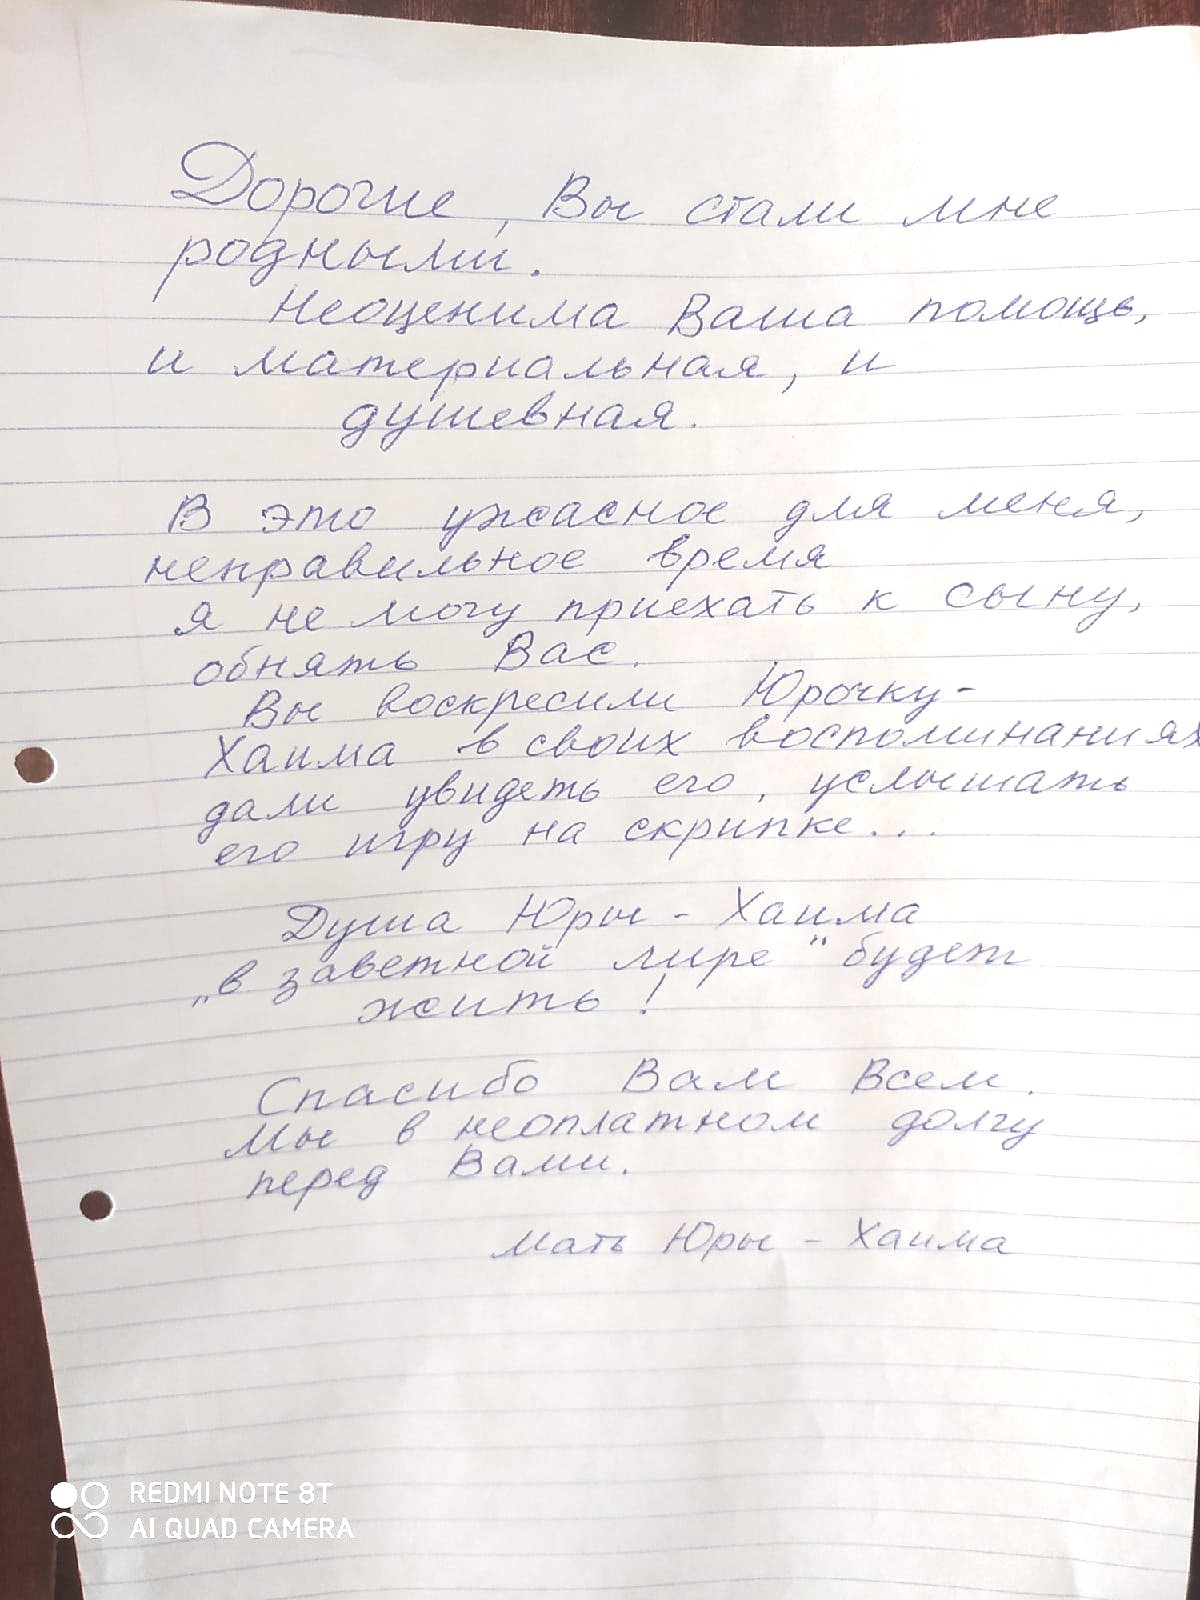 Дорогие, Вы стали мне
родными.
Неоценима Ваша помощь,
и материальная, и
душевная.
В это ужасное для меня,
неправильное время
я не могу приехать к сыну,
обнять Вас.
Вы воскресили Юрочку-
Хаима в своих воспоминаниях
дали увидеть его, услышать
его игру на скрипке...
Душа Юры - Хаима
„в заветной лире" будет
жить!
Спасибо Вам Всем.
Мы в неоплатном долгу
перед Вами.
Мать Юры - Хаима
REDMI NOTE 8T
AI QUAD CAMERA